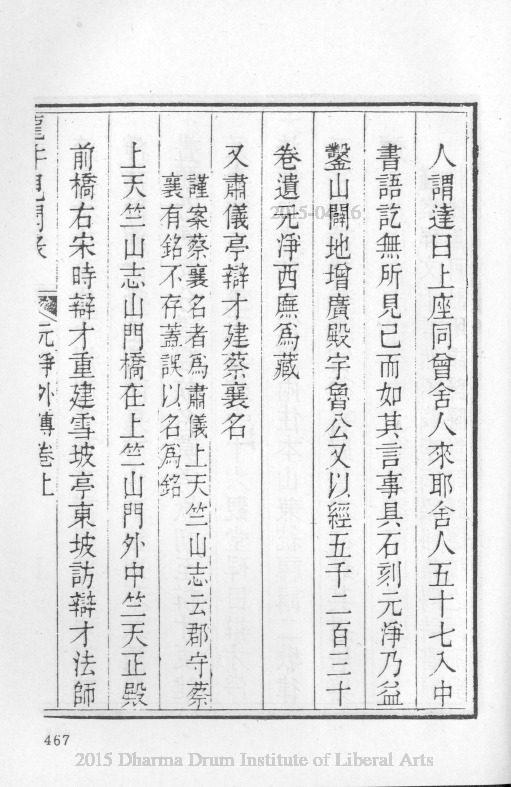 人謂達曰上座同曾舍人來耶舍人五十七入中
書語訖無所見已而如其言事具石刻元淨乃益
鑿山闢地增廣殿宇魯公又以經五千二百三十
卷遺元淨西廡為藏
又肅儀亭辯才建蔡襄名
謹案蔡襄名者為肅儀上天竺山志云郡守蔡
襄有銘不存蓋誤以名為銘
上天竺山志山門橋在上竺山門外中竺天正殿
前橋右宋時辯才重建雪坡亭東坡訪辯才法師
龍井見聞錄 元淨外傳卷上
467
2015 Dharma Drum Institute of Liberal Arts